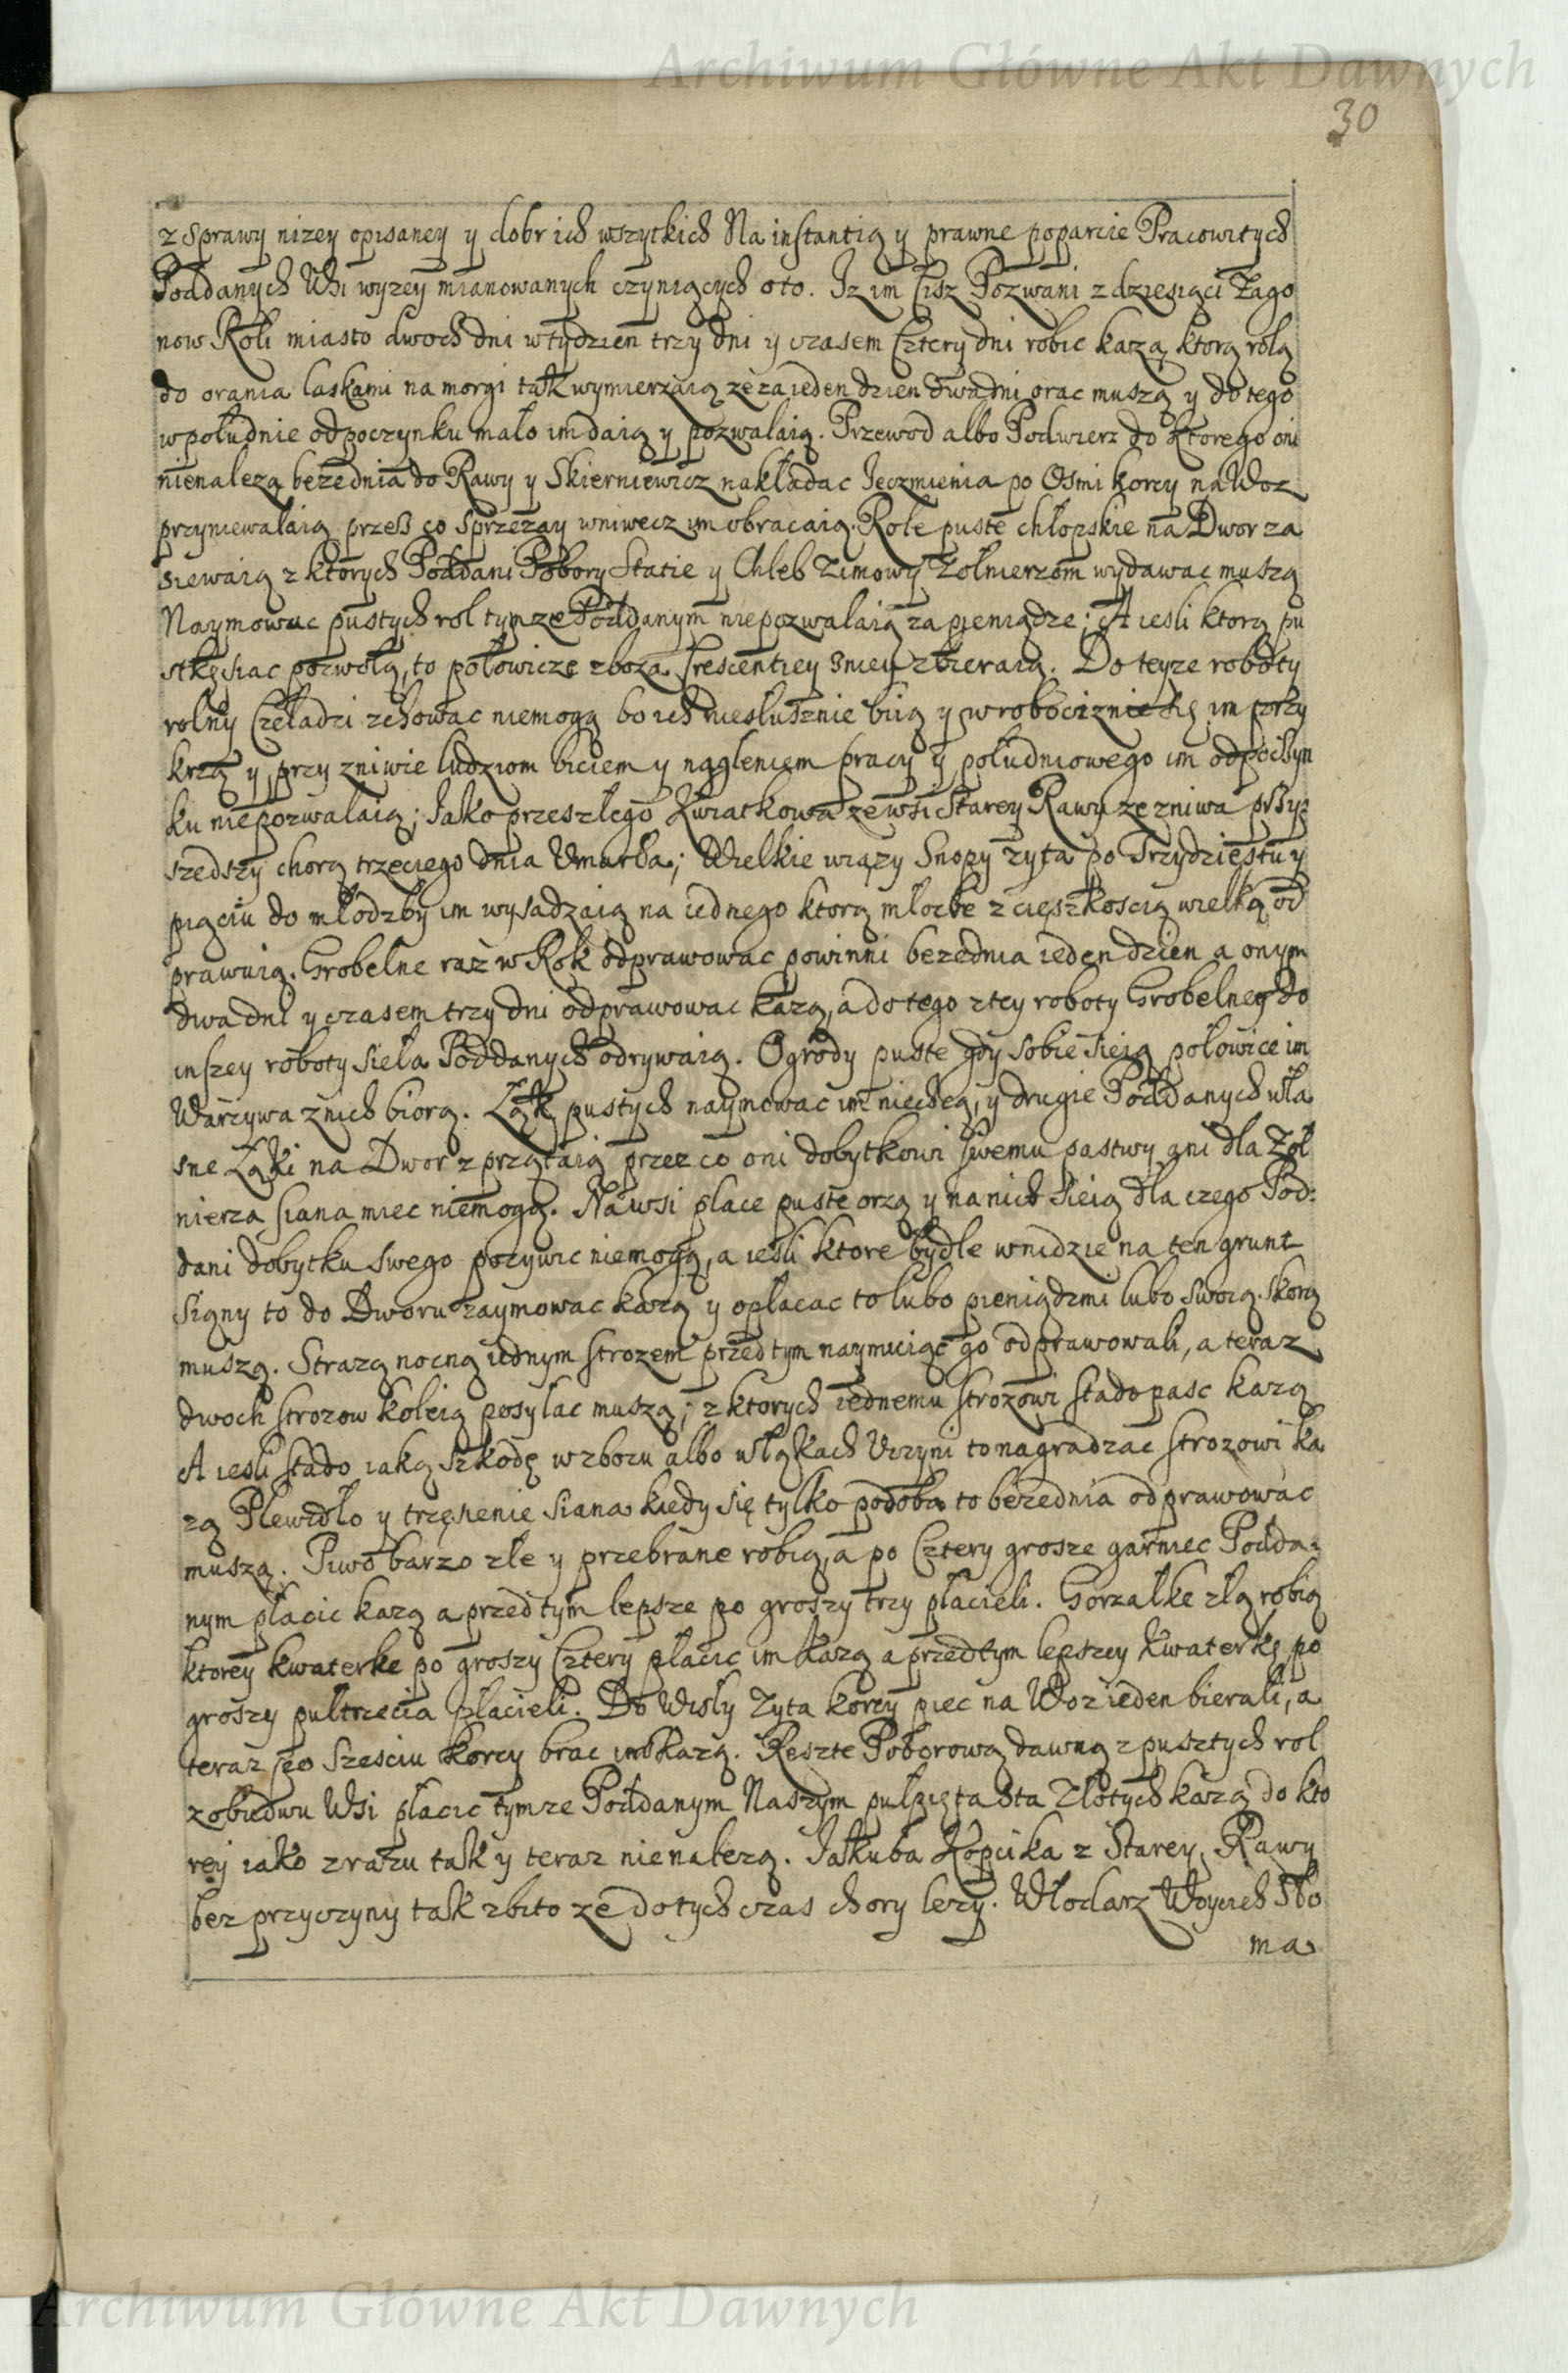 Archiwum Główne Akt Dawnych
30
z sprawy nizey opisaney y dobr ich wszytkich Na instantią y prawne poparcie Pracowitych
Poddanych Wsi wyzey mianowanych czyniących oto. Iz im Cisz Pozwani z dziesiąci Zago
now Roli miasto dwoch dni w tydzien trzy dni y czasem Cztery dni robic kazą, ktorą rolą
do orania laskami na morgi tak wymierzaią ze za ieden dzien dwa dni orac muszą y do tego
w południe odpoczynku mało im daią y pozwalaią. Przewod albo Podwierz do ktorego oni
nienalezą bezednia do Rawy y Skierniewicz nakładac Ieczmienia po Osmi korcy na Woz
przyniewalaią przeß co Sprzezay wniwecz im obracaią. Role puste chłopskie na Dwor za
siewaią z ktorych Poddani Pobory Statie y Chleb Zimowy Zolnierzom wydawac muszą
Naymowac pustych rol tymze Poddanym niepozwalaią za pieniądze; A iesli ktorą pu
stkę siac pozwolą, to połowicze zboza Crescentiey zniey zbieraią. Do teyze roboty
rolny Czeladzi zchowac niemogą bo ich niesłusznie biią y w robociznie się im przy
krzą y przy zniwie ludziom biciem y nągleniem pracy y południowego im odpoczyn
ku niepozwalaią; Iako przeszłego Kwiatkowa ze wsi Starey Rawy ze zniwa przy:
szedszy chorą trzeciego dnia Umarła; Wielkie wiązy Snopy zyta po trzydziestu y
piąciu do młodzby im wysadzaią na iednego ktorą młocbe z cięszkoscią wielką od
prawuią. Grobelne raz w Rok odprawowac powinni bezednia ieden dzien a onym
dwa dni y czasem trzy dni odprawowac kazą, a do tego z tey roboty Grobelney do
inszey roboty siela Poddanych odrywaią. Ogrody puste gdy sobie sieią połowice im
Warzywa znich biorą. Ląk pustych naymowac im niechcą, y drugie Poddanych wła
sne Ląki na Dwor zprzątaią przez co oni dobytkowi swemu pastwy ani dla Zoł
nierza siana miec niemogą. Na wsi place puste orzą y na nich sieią dla czego Pod:
dani dobytku swego pozywic niemogą, a iesli ktore bydle wnidzie na ten grunt
siany to do Dworu zaymowac kazą y opłacac to lubo pieniądzmi lubo swoią skorą
muszą. Strazą nocną iednym strozem przedtym naymuiąc go odprawowali, a teraz
dwoch strozow koleią posylac muszą; z ktorych iednemu strozowi stado pasc kazą
A iesli stado iaką szkodę w zbozu albo w łąkach Uczyni to nagradzac strozowi ka
zą Plewidło y trzęsienie siana kiedy się tylko podoba to bezednia odprawowac
muszą. Piwo barzo złe y przebrane robią, a po Cztery grosze garniec Podda:
nym placic kazą a przedtym lepsze po groszy trzy płacieli. Gorzałke złą robią
ktorey kwaterke po groszy Cztery płacic im kazą a przedtym lepszey kwaterkę po
groszy pultrzecia płacieli. Do Wisly Zyta korcy piec na Woz ieden bierali, a
teraz po szesciu korcy brac im kazą. Reszte Poborową dawną z pusztych rol
z obudwu Wsi placic tymze Poddanym Naszym pulpięta sta Złotych kazą do kto
rey iako zrazu tak y teraz nienalezą. Iakuba Kopcika z Starey Rawy
bez przyczyny tak zbito ze do tych czas chory lezy. Włodarz Woyciech Sło
ma
Archiwum Główne Akt Dawnych